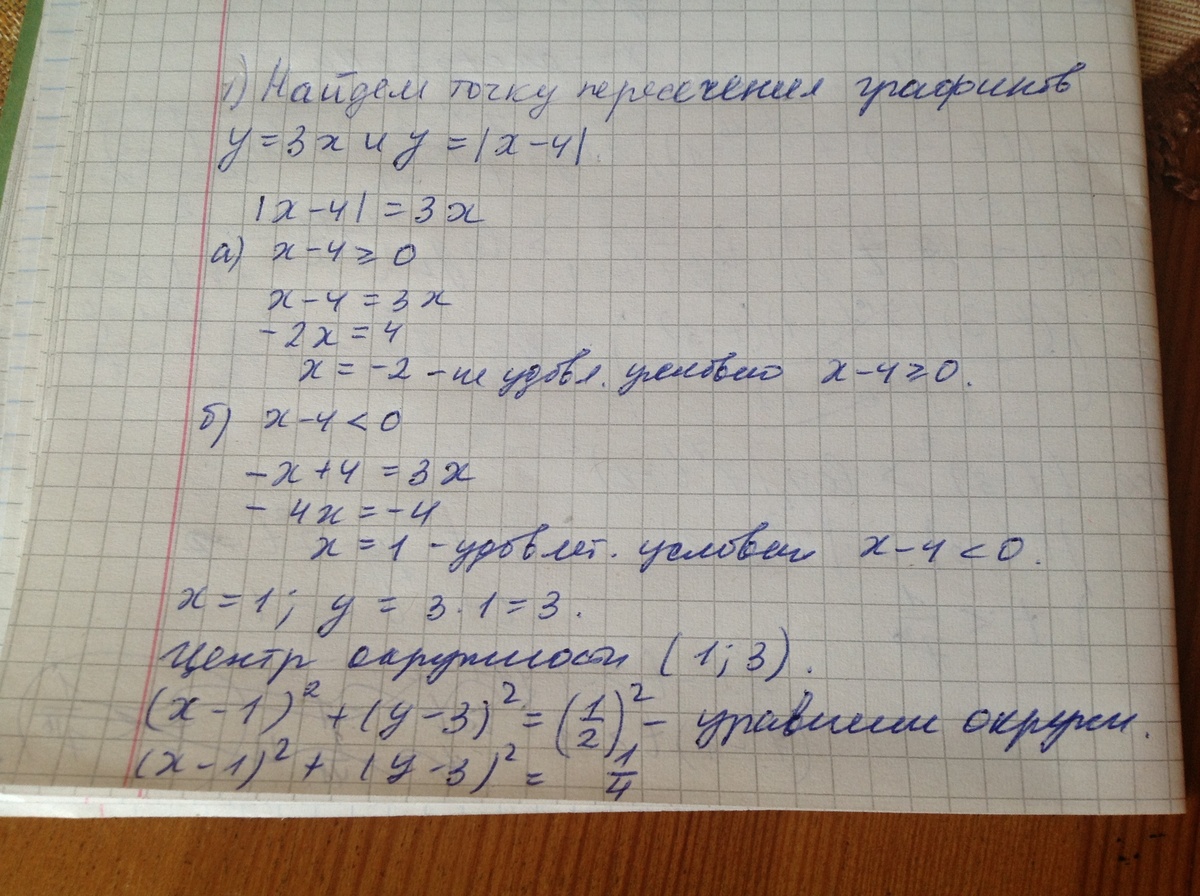 1) Найдем точку пересечения графиков
y = 3x и y = |x-4|.
|x-4| = 3x
а) x-4 ≥ 0
x-4 = 3x
-2x = 4
x = -2 - не удовл. условию x-4≥0.
б) x-4 < 0
-x+4 = 3x
-4x = -4
x = 1 - удовлет. условию x-4 < 0.
x = 1; y = 3·1 = 3.
Центр окружности (1; 3).
(x-1)² + (y-3)² = (1/2)² - уравнение окружн.
(x-1)² + (y-3)² = 1/4